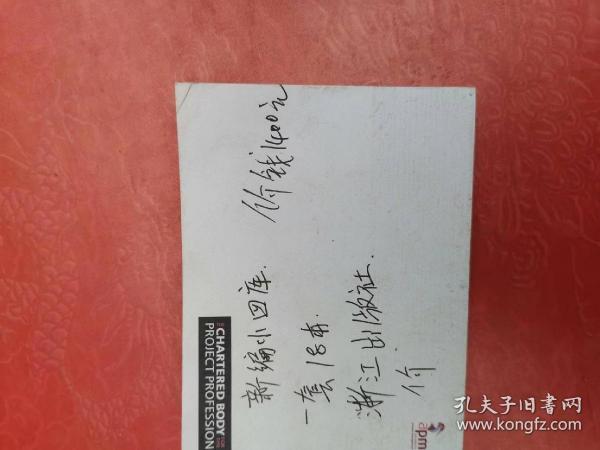 新编小四库. 价钱1400元
一套18本.
浙江出版社.
价
THE CHARTERED BODY FOR THE
PROJECT PROFESSION
apm
孔夫子旧书网
www.kongfz.com